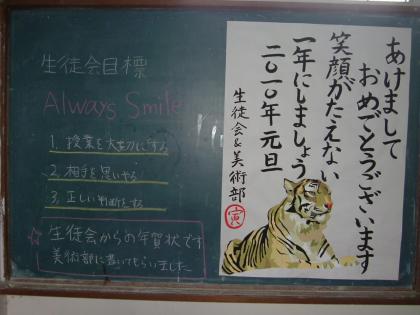 生徒会目標
Always Smile
1. 授業を大切にする
2. 相手を思いやる
3. 正しい判断をする
☆生徒会からの年賀状です
美術部に書いてもらいました
あけまして
おめでとうございます
笑顔がたえない
一年にしましょう
二〇一〇年 元旦
生徒会&美術部
寅